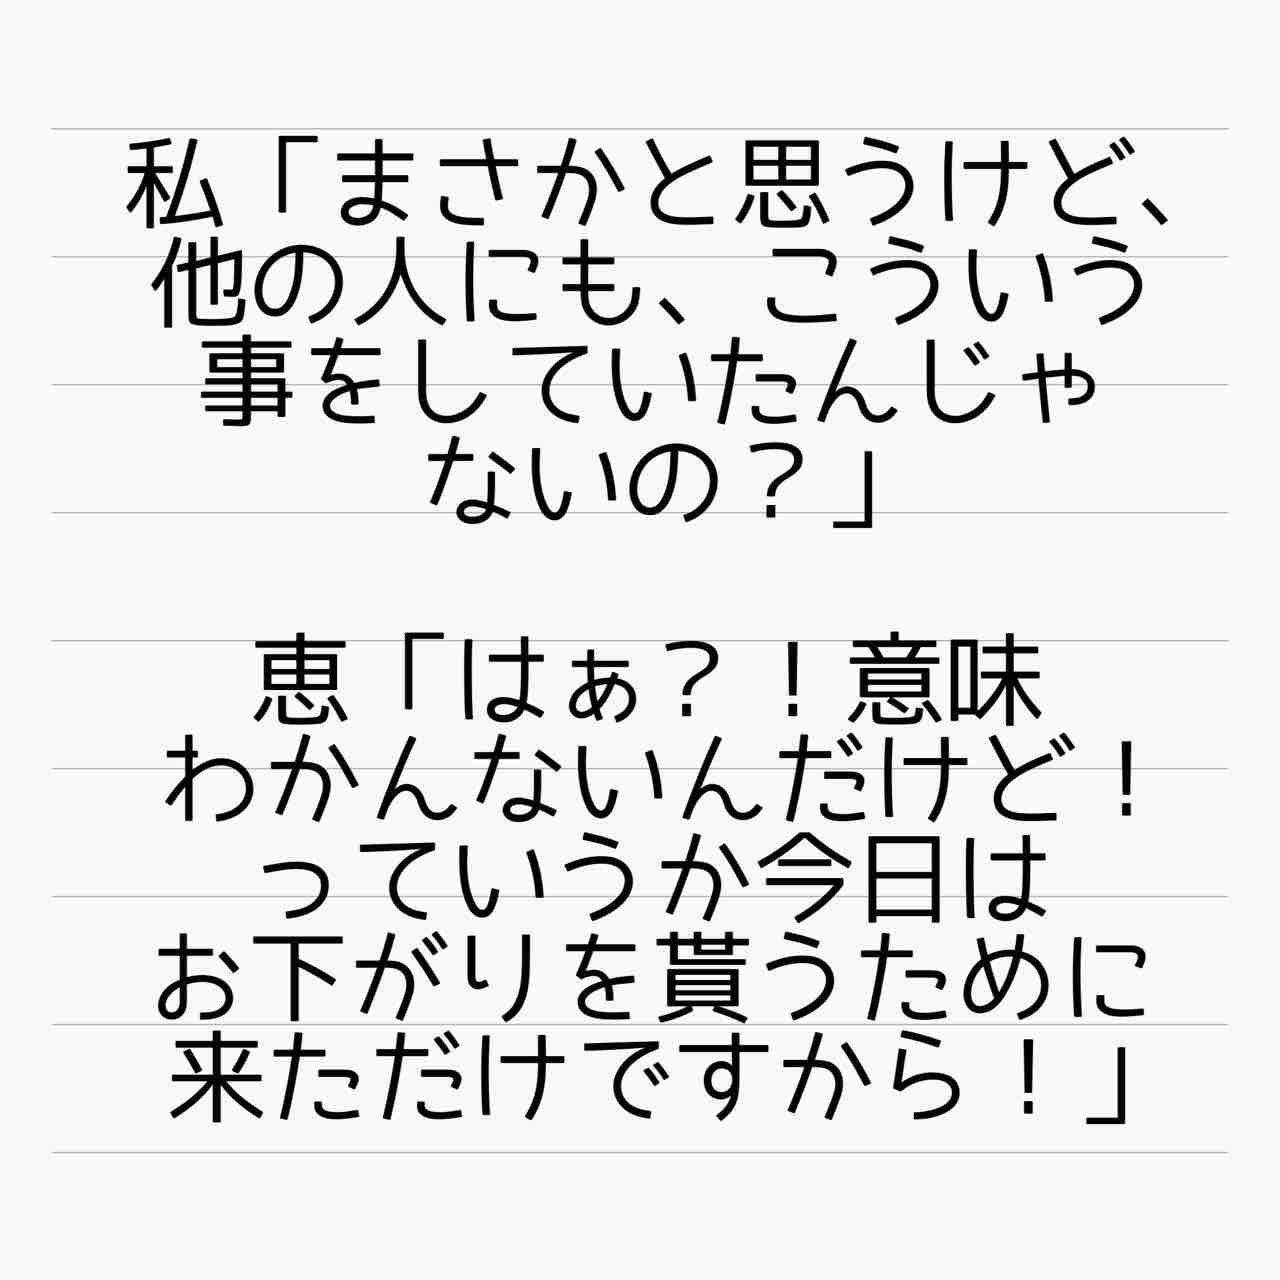 私「まさかと思うけど、
他の人にも、こういう
事をしていたんじゃ
ないの？」
恵「はぁ？！意味
わかんないんだけど！
っていうか今日は
お下がりを貰うために
来ただけですから！」